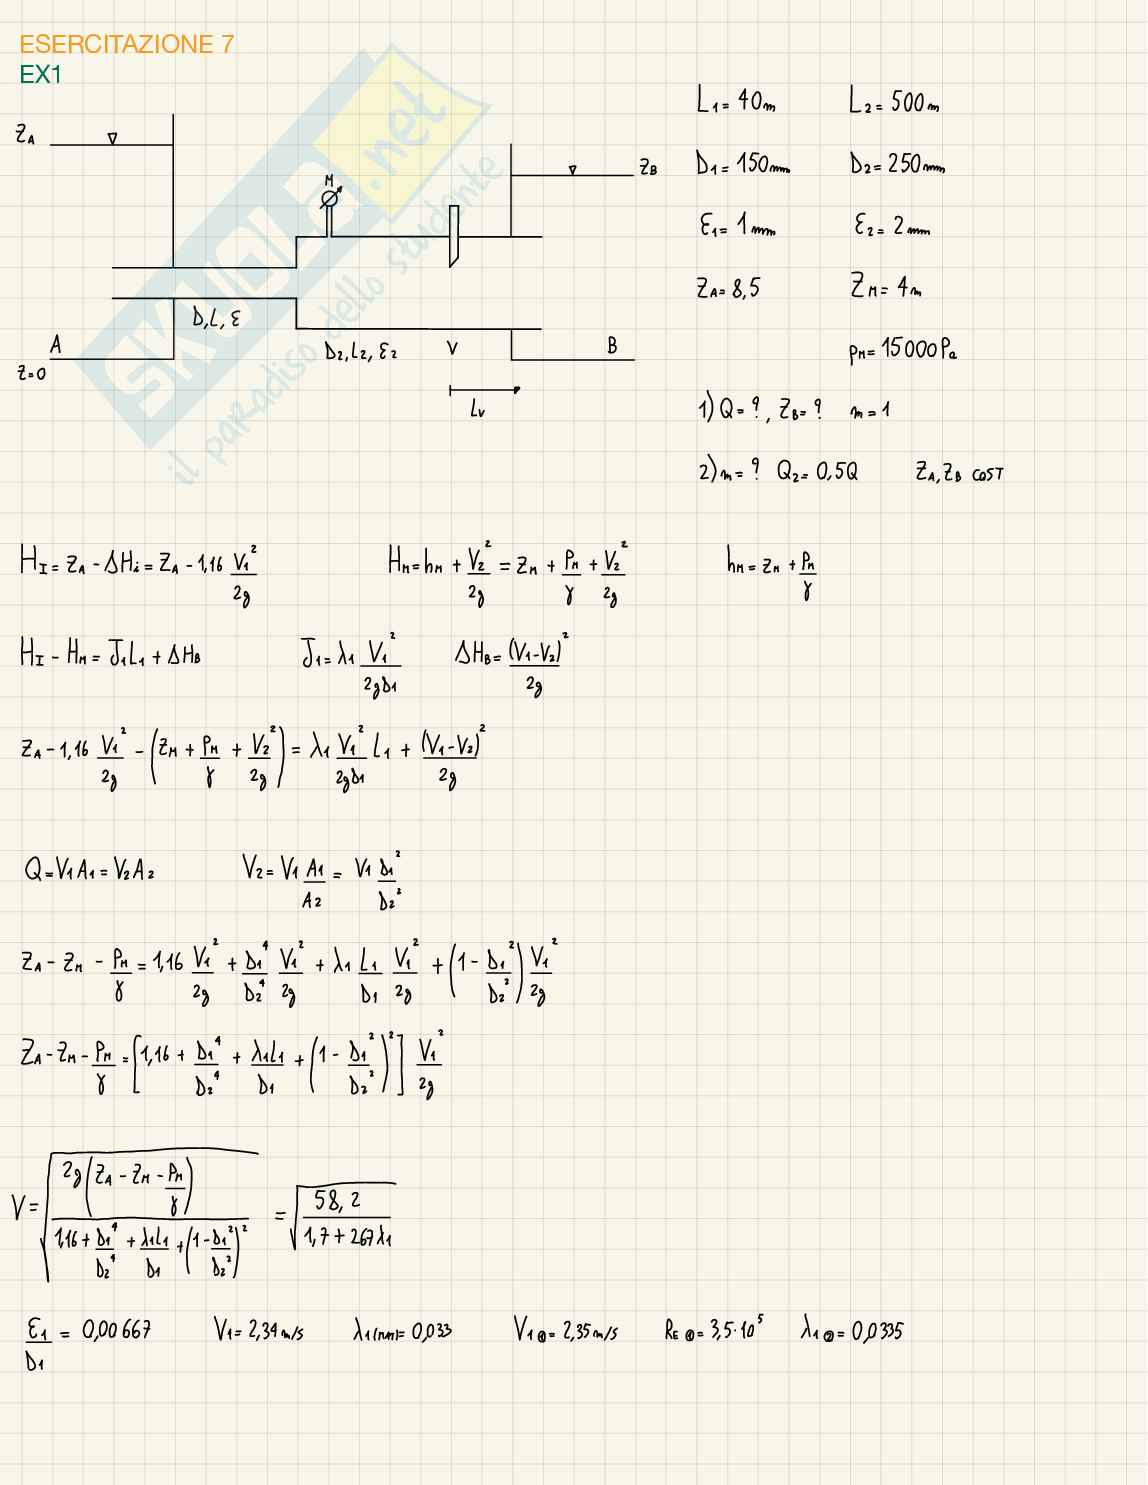 ESERCITAZIONE 7
EX1
L1 = 40m L2 = 500m
ZA
M
ZB
D1 = 150mm D2 = 250mm
ε1 = 1mm ε2 = 2mm
ZA = 8,5 ZM = 4m
D, L, ε
A
D2, L2, ε2 V B
pM = 15000Pa
z=0
LV
1) Q = ?, ZB = ? m = 1
2) m = ? Q2 = 0,5Q ZA, ZB COST
SKUOLA.net
il paradiso dello studente
HI = ZA - ΔHi = ZA - 1,16 V1²/2g HM = hM + V2²/2g = ZM + PM/γ + V2²/2g hM = ZM + PM/γ
HI - HM = J1L1 + ΔHB J1 = λ1 V1²/2gD1 ΔHB = (V1-V2)²/2g
ZA - 1,16 V1²/2g - (ZM + PM/γ + V2²/2g) = λ1 V1²/2gD1 L1 + (V1-V2)²/2g
Q = V1A1 = V2A2 V2 = V1 A1/A2 = V1 D1²/D2²
ZA - ZM - PM/γ = 1,16 V1²/2g + D1⁴/D2⁴ V1²/2g + λ1 L1/D1 V1²/2g + (1 - D1²/D2²) V1²/2g
ZA - ZM - PM/γ = [1,16 + D1⁴/D2⁴ + λ1L1/D1 + (1 - D1²/D2²)²] V1²/2g
V = √(2g(ZA - ZM - PM/γ) / (1,16 + D1⁴/D2⁴ + λ1L1/D1 + (1 - D1²/D2²)²)) = √(58,2 / (1,7 + 267λ1))
ε1/D1 = 0,00667 V1 = 2,34 m/s λ1(MM) = 0,033 V1① = 2,35 m/s RE① = 3,5·10⁵ λ1② = 0,0335